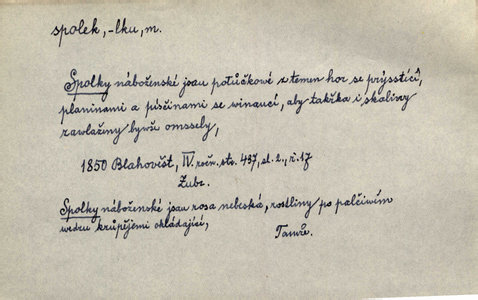 spolek, -lku, m.
Spolky náboženské jsau potůčkové z temen hor se prýsstící,
planinami a písčinami se winaucí, aby takřka i skaliny
zawlaženy bywše omssely,
1850 Blahověst, IV. roč. str. 437, sl. 2., ř. 17
Žubr.
Spolky náboženské jsau rosa nebeská, rostliny po palčiwém
wedru krůpějemi ohládající,
Tamže.